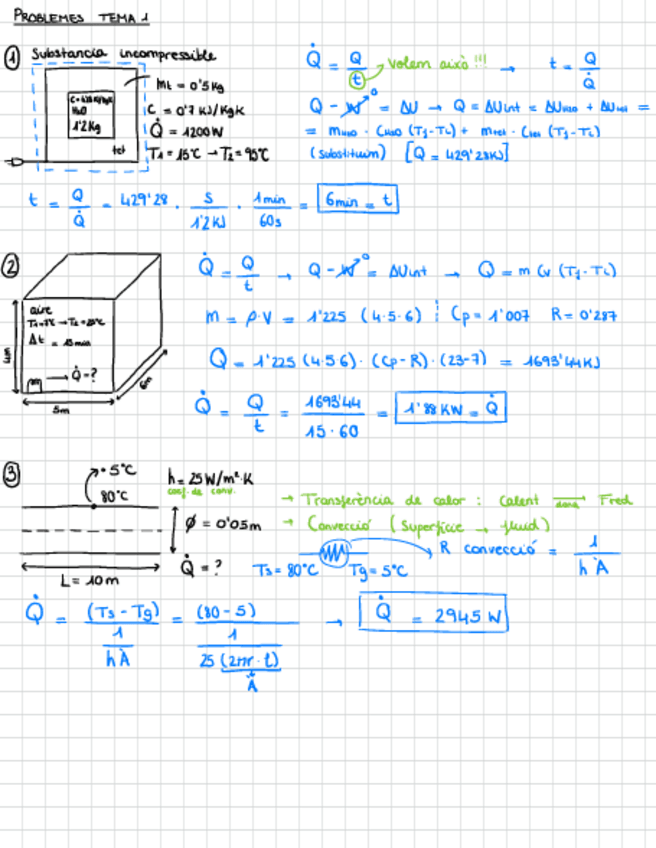 PROBLEMES TEMA 1
① Substancia incompressible
mt = 0'5 Kg
H2O
1'2 Kg
tet
C = 0'7 KJ/KgK
Q̇ = 1200W
T1 = 15°C → T2 = 95°C
Q̇ = Q / t → volem això !!! → t = Q / Q̇
Q - W⁰ = ΔU → Q = ΔUint = ΔUH2O + ΔUtet =
= mH2O · CH2O (Tf - Ti) + mtet · Ctet (Tf - Ti)
(substituim) [Q = 429'28KJ]
t = Q / Q̇ = 429'28 · s / 1'2KJ · 1min / 60s = 6min = t
②
aire
T1=7°C → T2=23°C
Δt = 15min
→ Q̇ = ?
4m
5m
6m
Q̇ = Q / t → Q - W⁰ = ΔUint → Q = m Cv (Tf - Ti)
m = ρ · V = 1'225 (4·5·6) Cp = 1'007 R = 0'287
Q = 1'225 (4·5·6) · (Cp - R) · (23 - 7) = 1693'44KJ
Q̇ = Q / t = 1693'44 / 15·60 = 1'88 KW = Q̇
③
· 5°C
80°C
h = 25 W/m²·K
coef. de conv.
ϕ = 0'05m
Q̇ = ?
L = 10m
→ Transferència de calor : Calent dona→ Fred
→ Convecció (Superfície → fluid)
Ts = 80°C Tg = 5°C
R convecció = 1 / h A
Q̇ = (Ts - Tg) / (1 / h A) = (80 - 5) / (1 / 25 (2πr · t)) → Q̇ = 2945 W
A